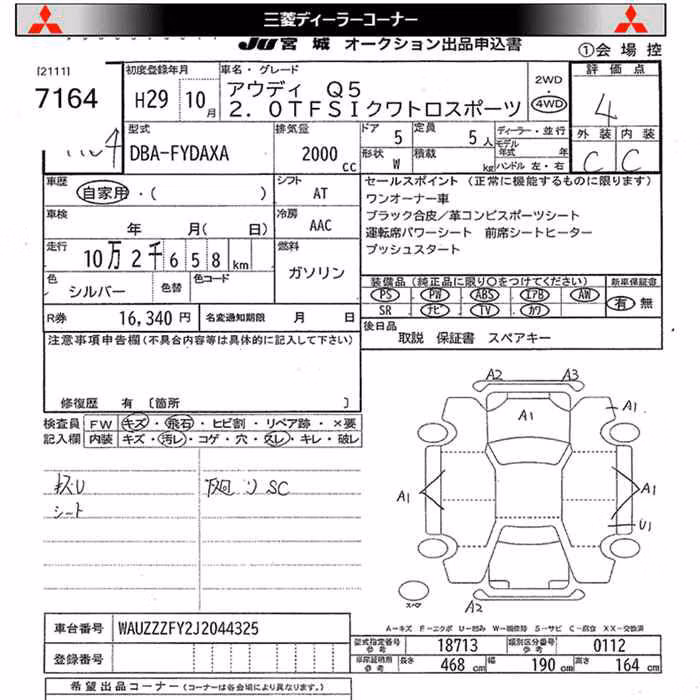 三菱ディーラーコーナー
JU宮城 オークション出品申込書
①会場控
[2111]
7164
初度登録年月
H29 10月
車名・グレード
アウディ Q5
2.0TFSIクワトロスポーツ
2WD
・
4WD
評価点
4
外装 内装
C C
型式
DBA-FYDAXA
排気量
2000 cc
ドア 5
定員 5人
形状 W
積載 kg
ディーラー・並行
モデル年式 年
ハンドル 左・右
車歴
自家用・( )
シフト
AT
車検
年 月( 日)
冷房
AAC
走行
10万2千658km
燃料
ガソリン
色
シルバー
色替
色コード
R券
16,340円
名変通知期限 月 日
セールスポイント (正常に機能するものに限ります)
ワンオーナー車
ブラック合皮/革コンビスポーツシート
運転席パワーシート 前席シートヒーター
プッシュスタート
装備品(純正品に限り○をつけてください)
新車保証書
PS PW ABS エアB AW
SR ナビ TV カワ
有 無
後日品
取説 保証書 スペアキー
注意事項申告欄(不具合内容等は具体的に記入して下さい)
修復歴 有 [箇所 ]
検査員
記入欄
FW キズ・飛石・ヒビ割・リペア跡・×要
内装 キズ・汚レ・コゲ・穴・スレ・キレ・破レ
シート
下廻り SC
A2 A3
A1
A1
A1
A1
U1
スペア
A2
A-キズ E-エクボ U-凹み W-補修跡 S-サビ C-腐食 XX-交換済
車台番号
WAUZZZFY2J2044325
登録番号
型式指定番号
参考
18713
類別区分番号
参考
0112
車庫証明用
参考
長さ 468cm
幅 190cm
高さ 164cm
希望出品コーナー(コーナーは各会場により異なります。)